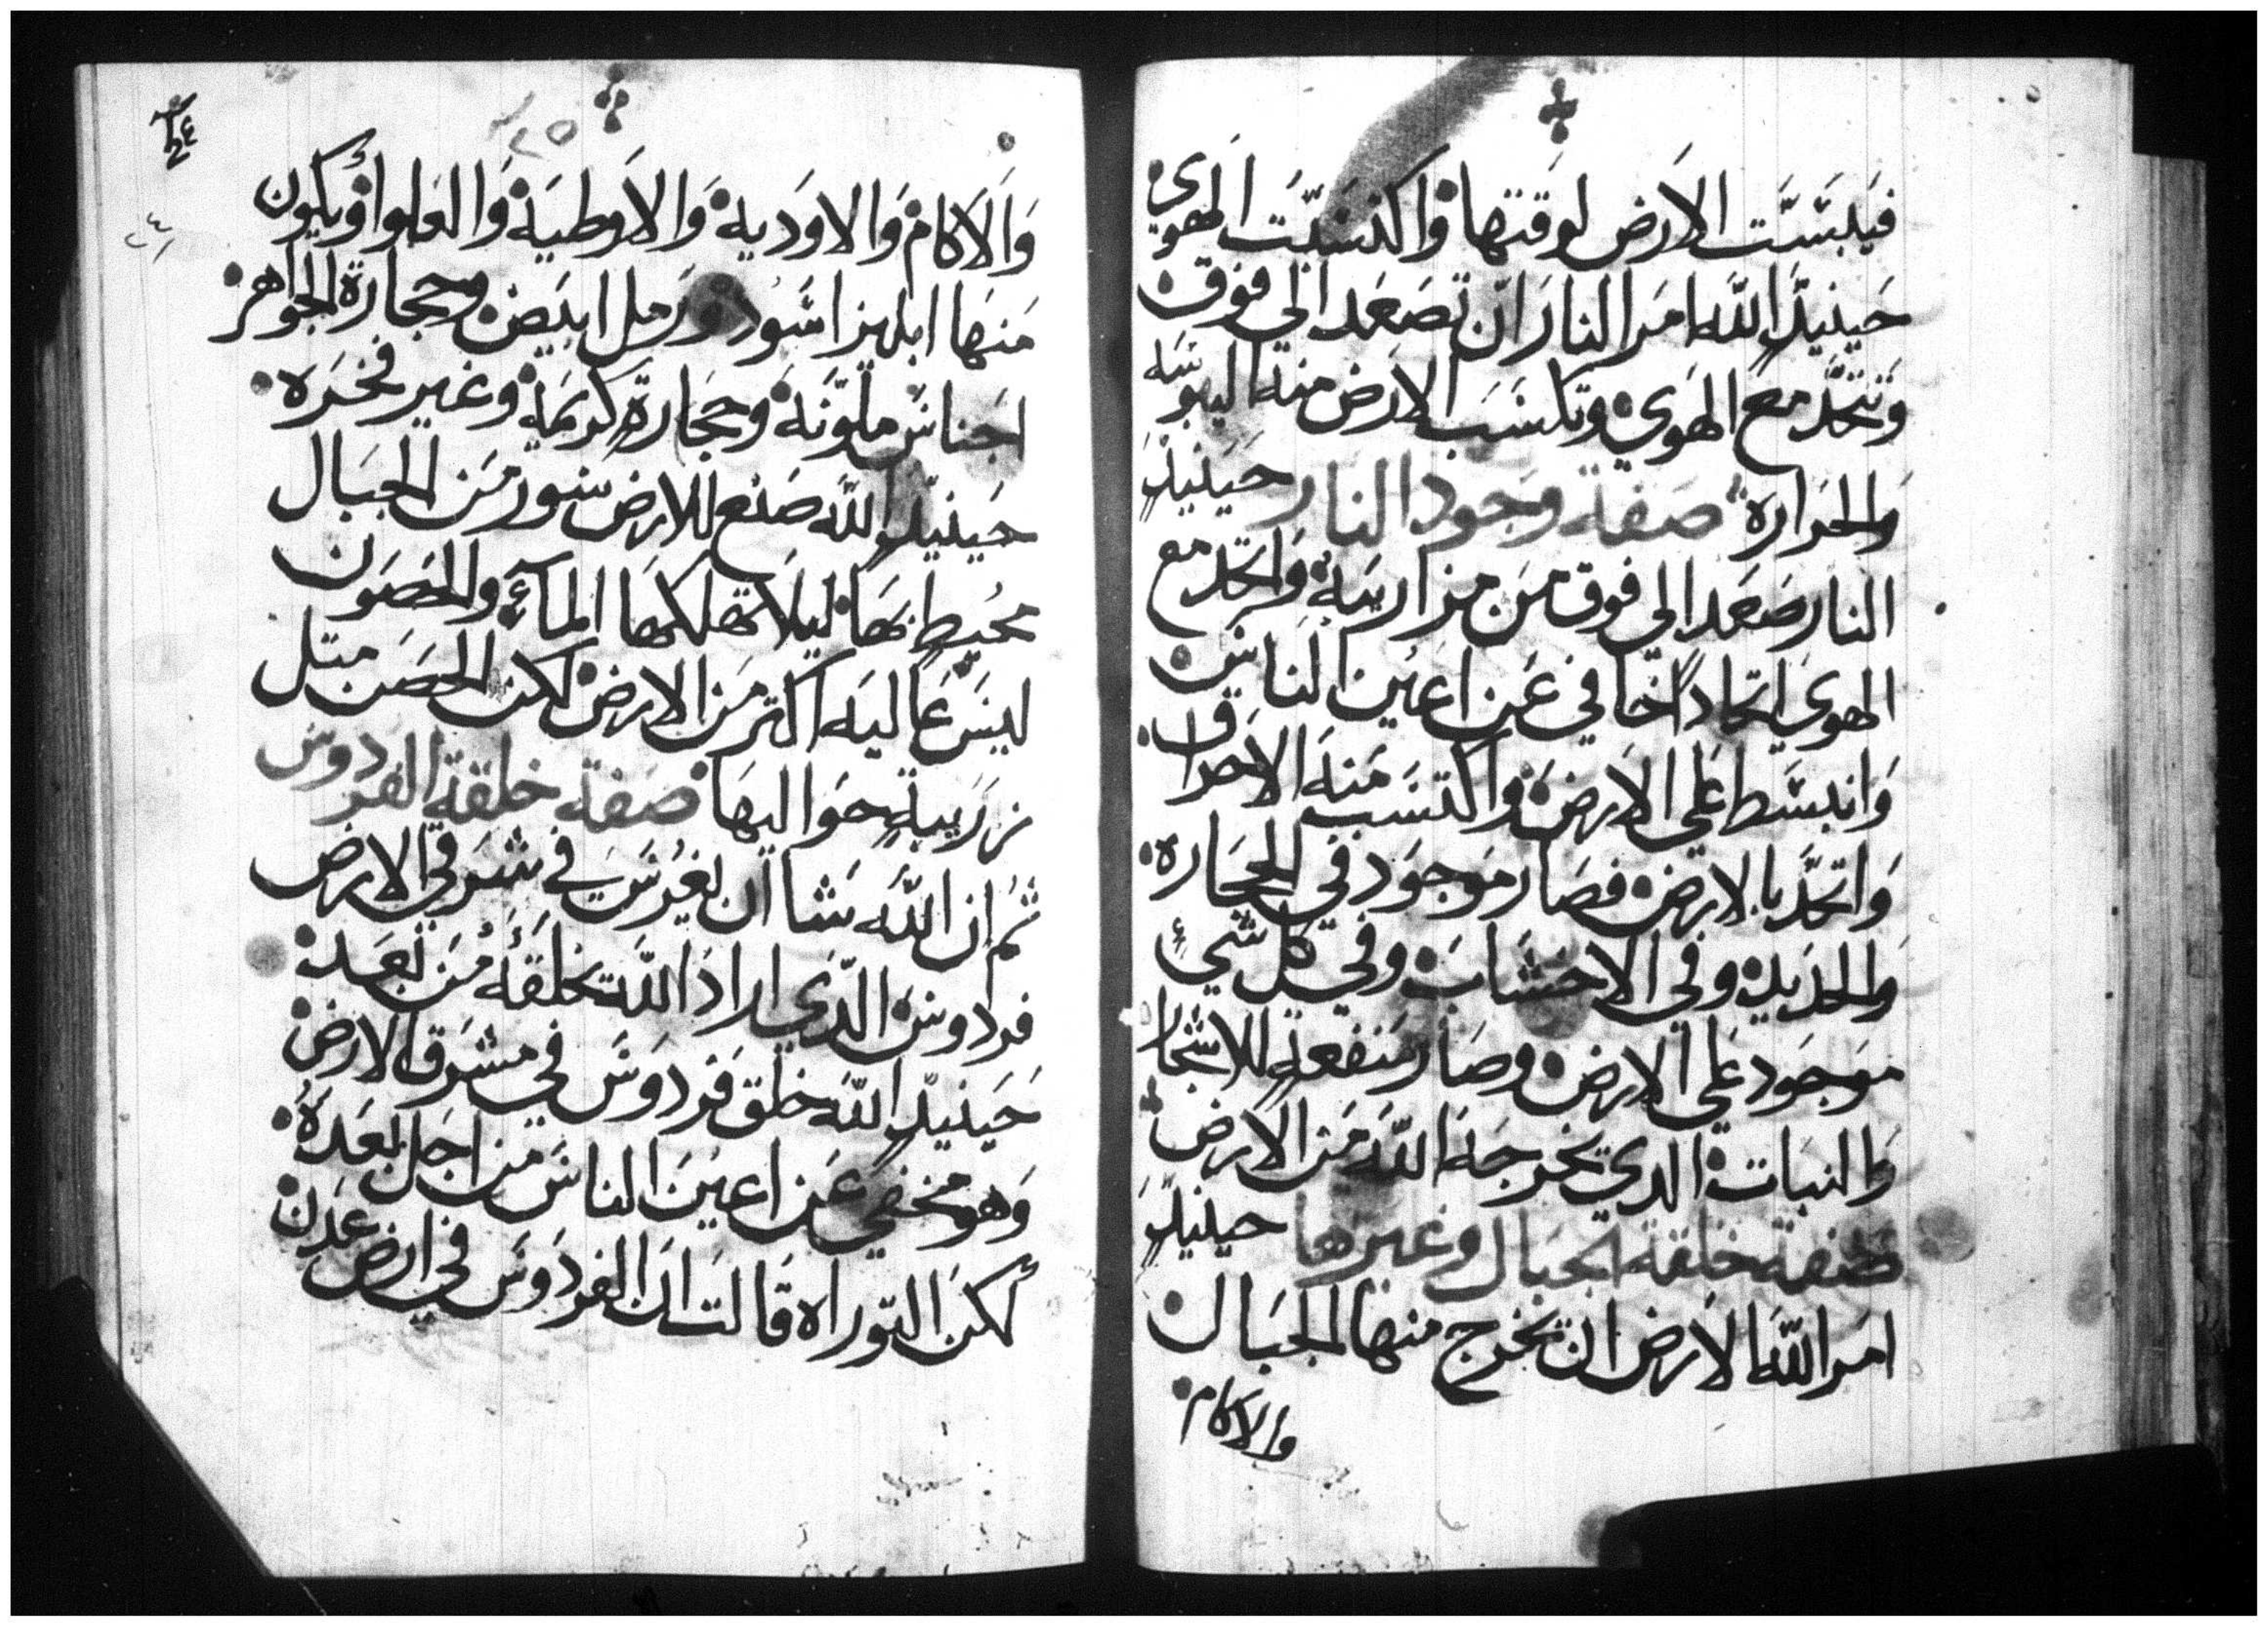 فيبسّت الارض لوقتها واكتسبت الهوي
حينيذٍ الله امر النار ان تصعد الي فوق
وتتحد مع الهوي وتكتسب الارض منه اليبوسه
والحراره صفة وجود النار حينيذٍ
النار صعد الي فوق من مزاريبه واتحد مع
الهوي اتحاداً خافي عن اعين الناس
وانبسط علي الارض واكتسب منه الاحراق
واتحد بالارض فصار موجود في الحجاره
والحديد وفي الاخشاب وفي كل شيء
موجود علي الارض وصار منفعةٍ للاشجار
والنبات الدي يخرجه الله من الارض
صفة خلقة الجبال وغيرها حينيذٍ
امر الله الارض ان تخرج منها الجبال
والاكام
وَالاكام والاودية والاوطية والعلوا ويكون
منها ابليز اسود ورمل ابيض وحجارة الجواهر
اجناس ملونة وحجارةٍ كريمة وغير فخره
حينيذٍ الله صنع للارض سور من الجبال
محيطٍ بها ليلا تهلكها المآء والحصون
ليس عاليه اكتر من الارض لاكن الحصن متل
زريبةٍ حواليها صفة خلقة الفردوس
ثم ان الله شا ان يغرس في شرقي الارض
فردوس الدي اراد الله يخلقه من بعده
حينيذٍ الله خلق فردوس في مشرق الارض
وهو مخفي عن اعين الناس من اجل بعده
لكن التوراه قالت ان الفردوس في ارض عدن